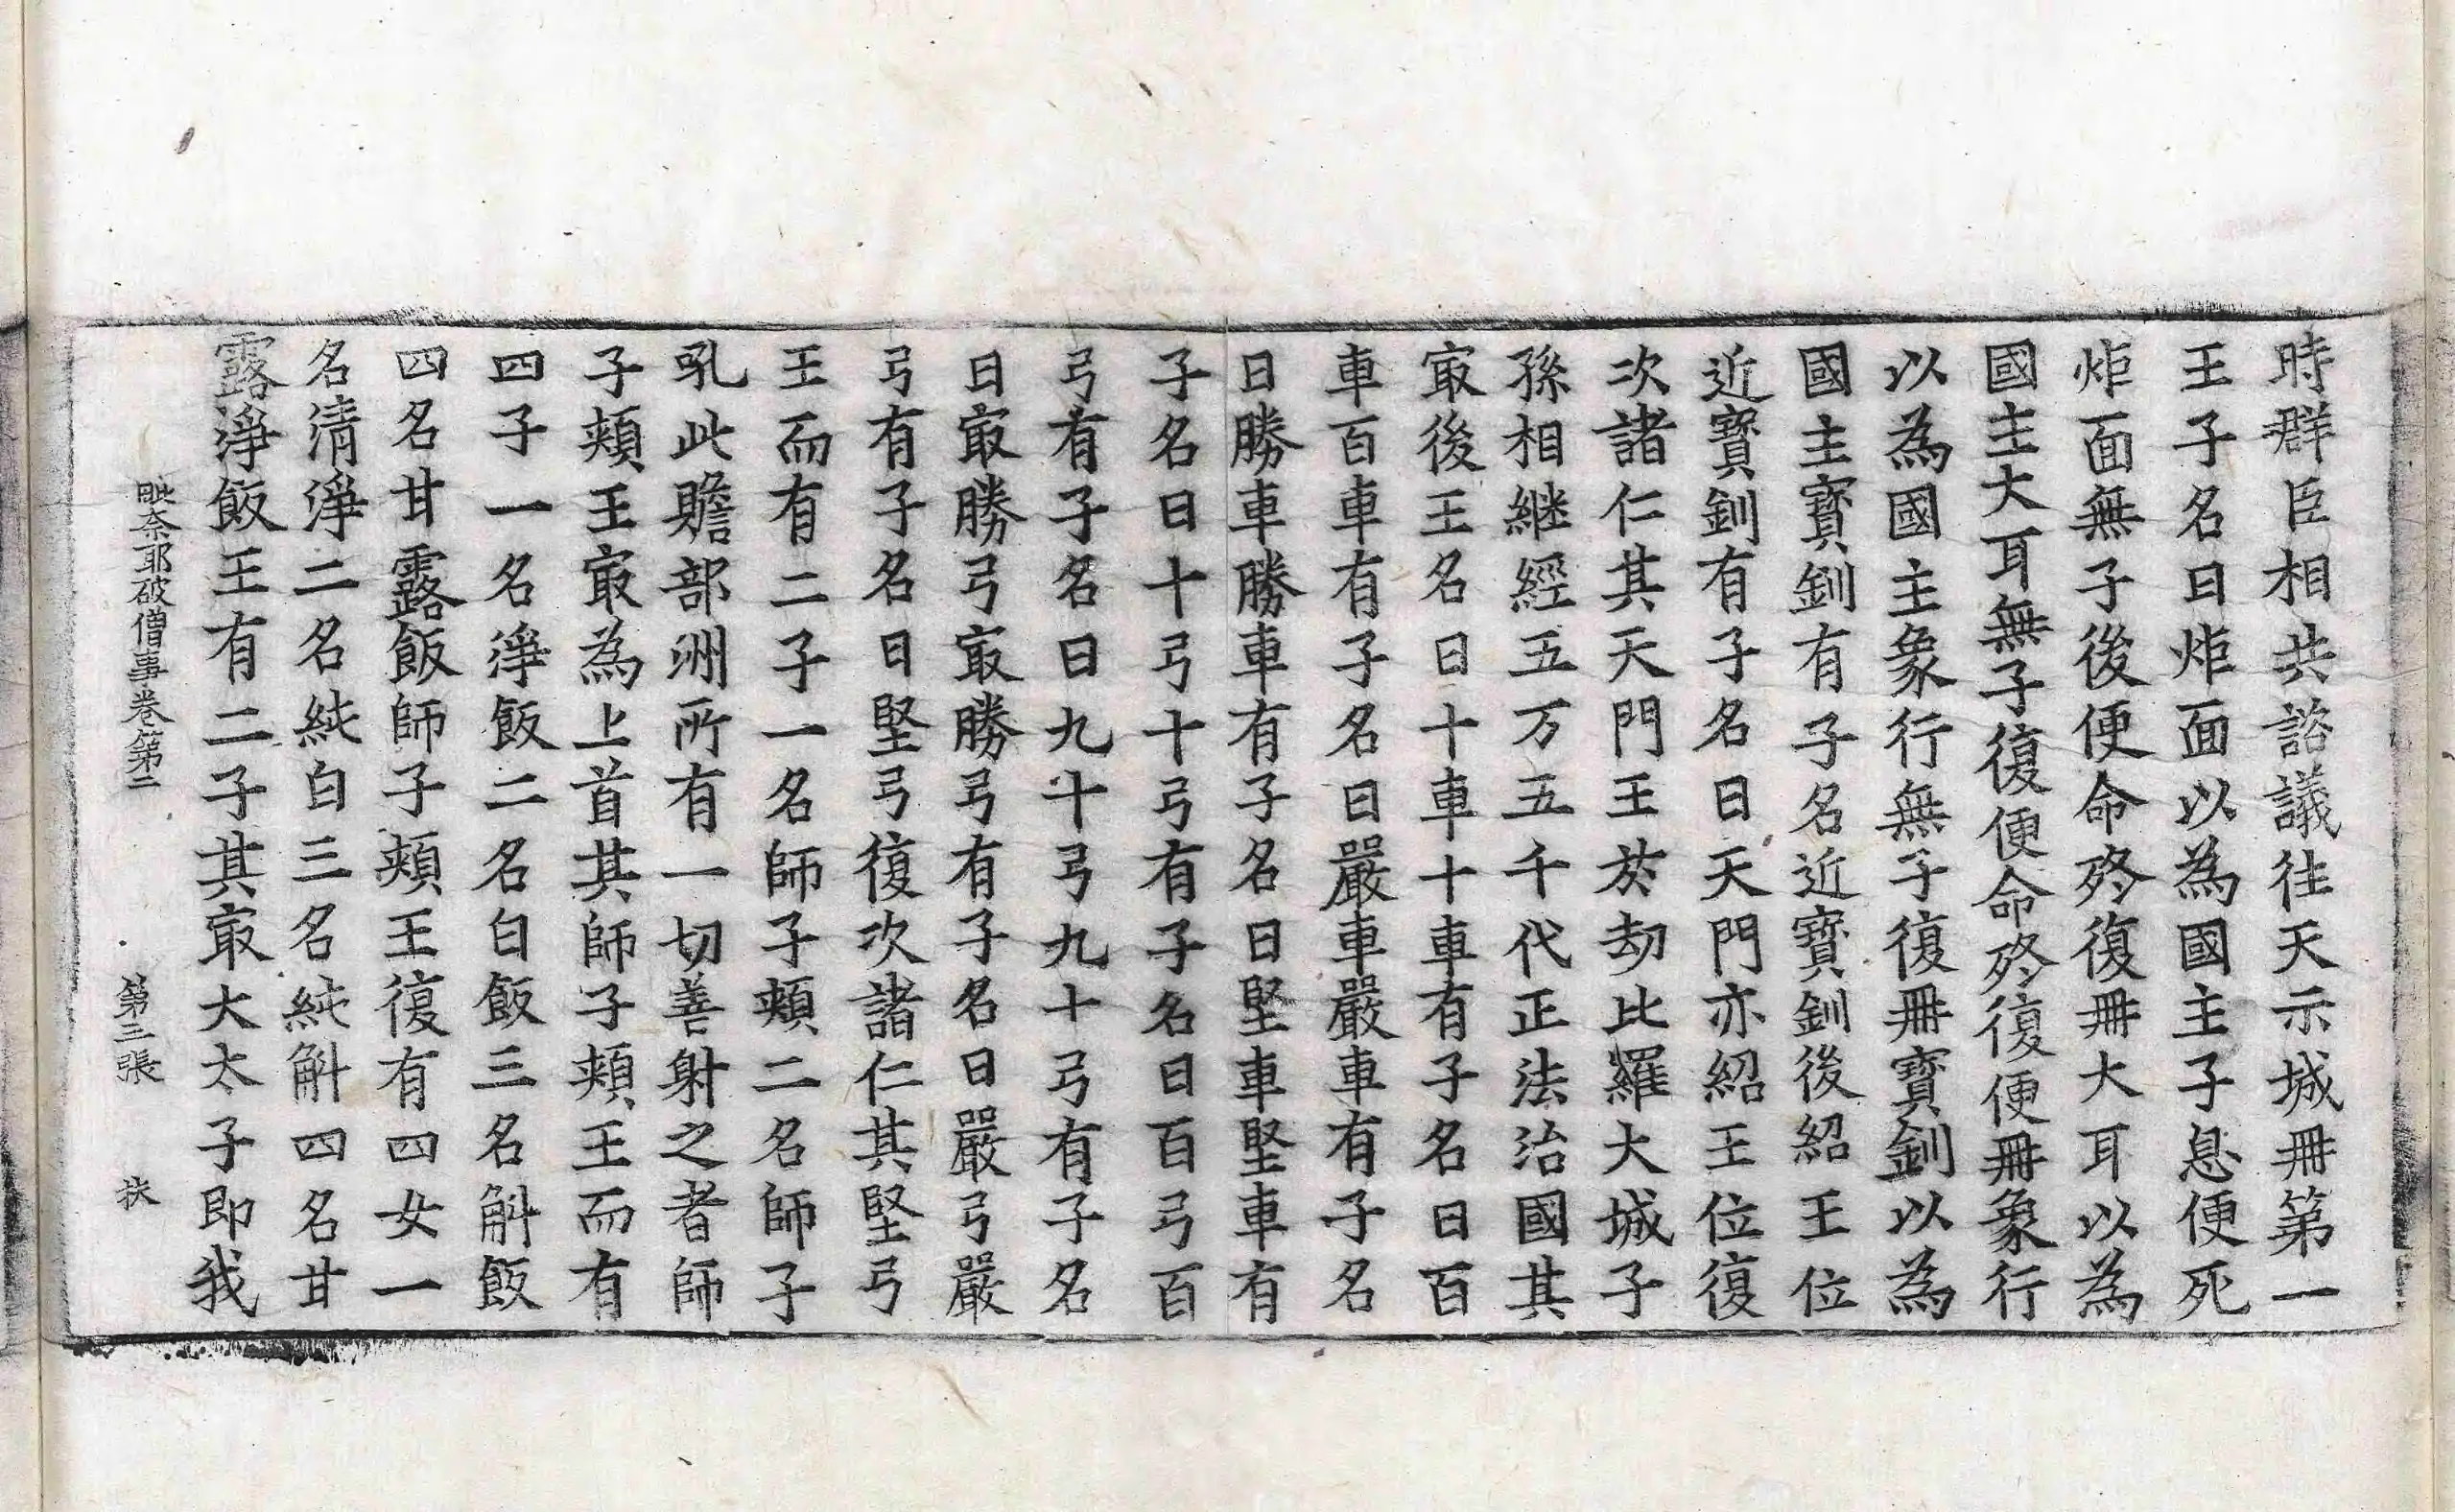 時群臣相共諮議往天示城冊第一
王子名曰炬面以為國主子息便死
炬面無子後便命終復冊大耳以為
國主大耳無子復便命終復便冊象行
以為國主象行無子復冊寶釧以為
國主寶釧有子名近寶釧後紹王位
近寶釧有子名曰天門亦紹王位復
次諸仁其天門王於劫比羅大城子
孫相継經五万五千代正法治國其
㝡後王名曰十車十車有子名曰百
車百車有子名曰嚴車嚴車有子名
曰勝車勝車有子名曰堅車堅車有
子名曰十弓十弓有子名曰百弓百
弓有子名曰九十弓九十弓有子名
曰㝡勝弓㝡勝弓有子名曰嚴弓嚴
弓有子名曰堅弓復次諸仁其堅弓
王而有二子一名師子頰二名師子
吼此贍部洲所有一切善射之者師
子頰王㝡為上首其師子頰王而有
四子一名淨飯二名白飯三名斛飯
四名甘露飯師子頰王復有四女一
名清淨二名純白三名純斛四名甘
露淨飯王有二子其㝡大太子即我
毗奈耶破僧事卷第二 第三張 扶